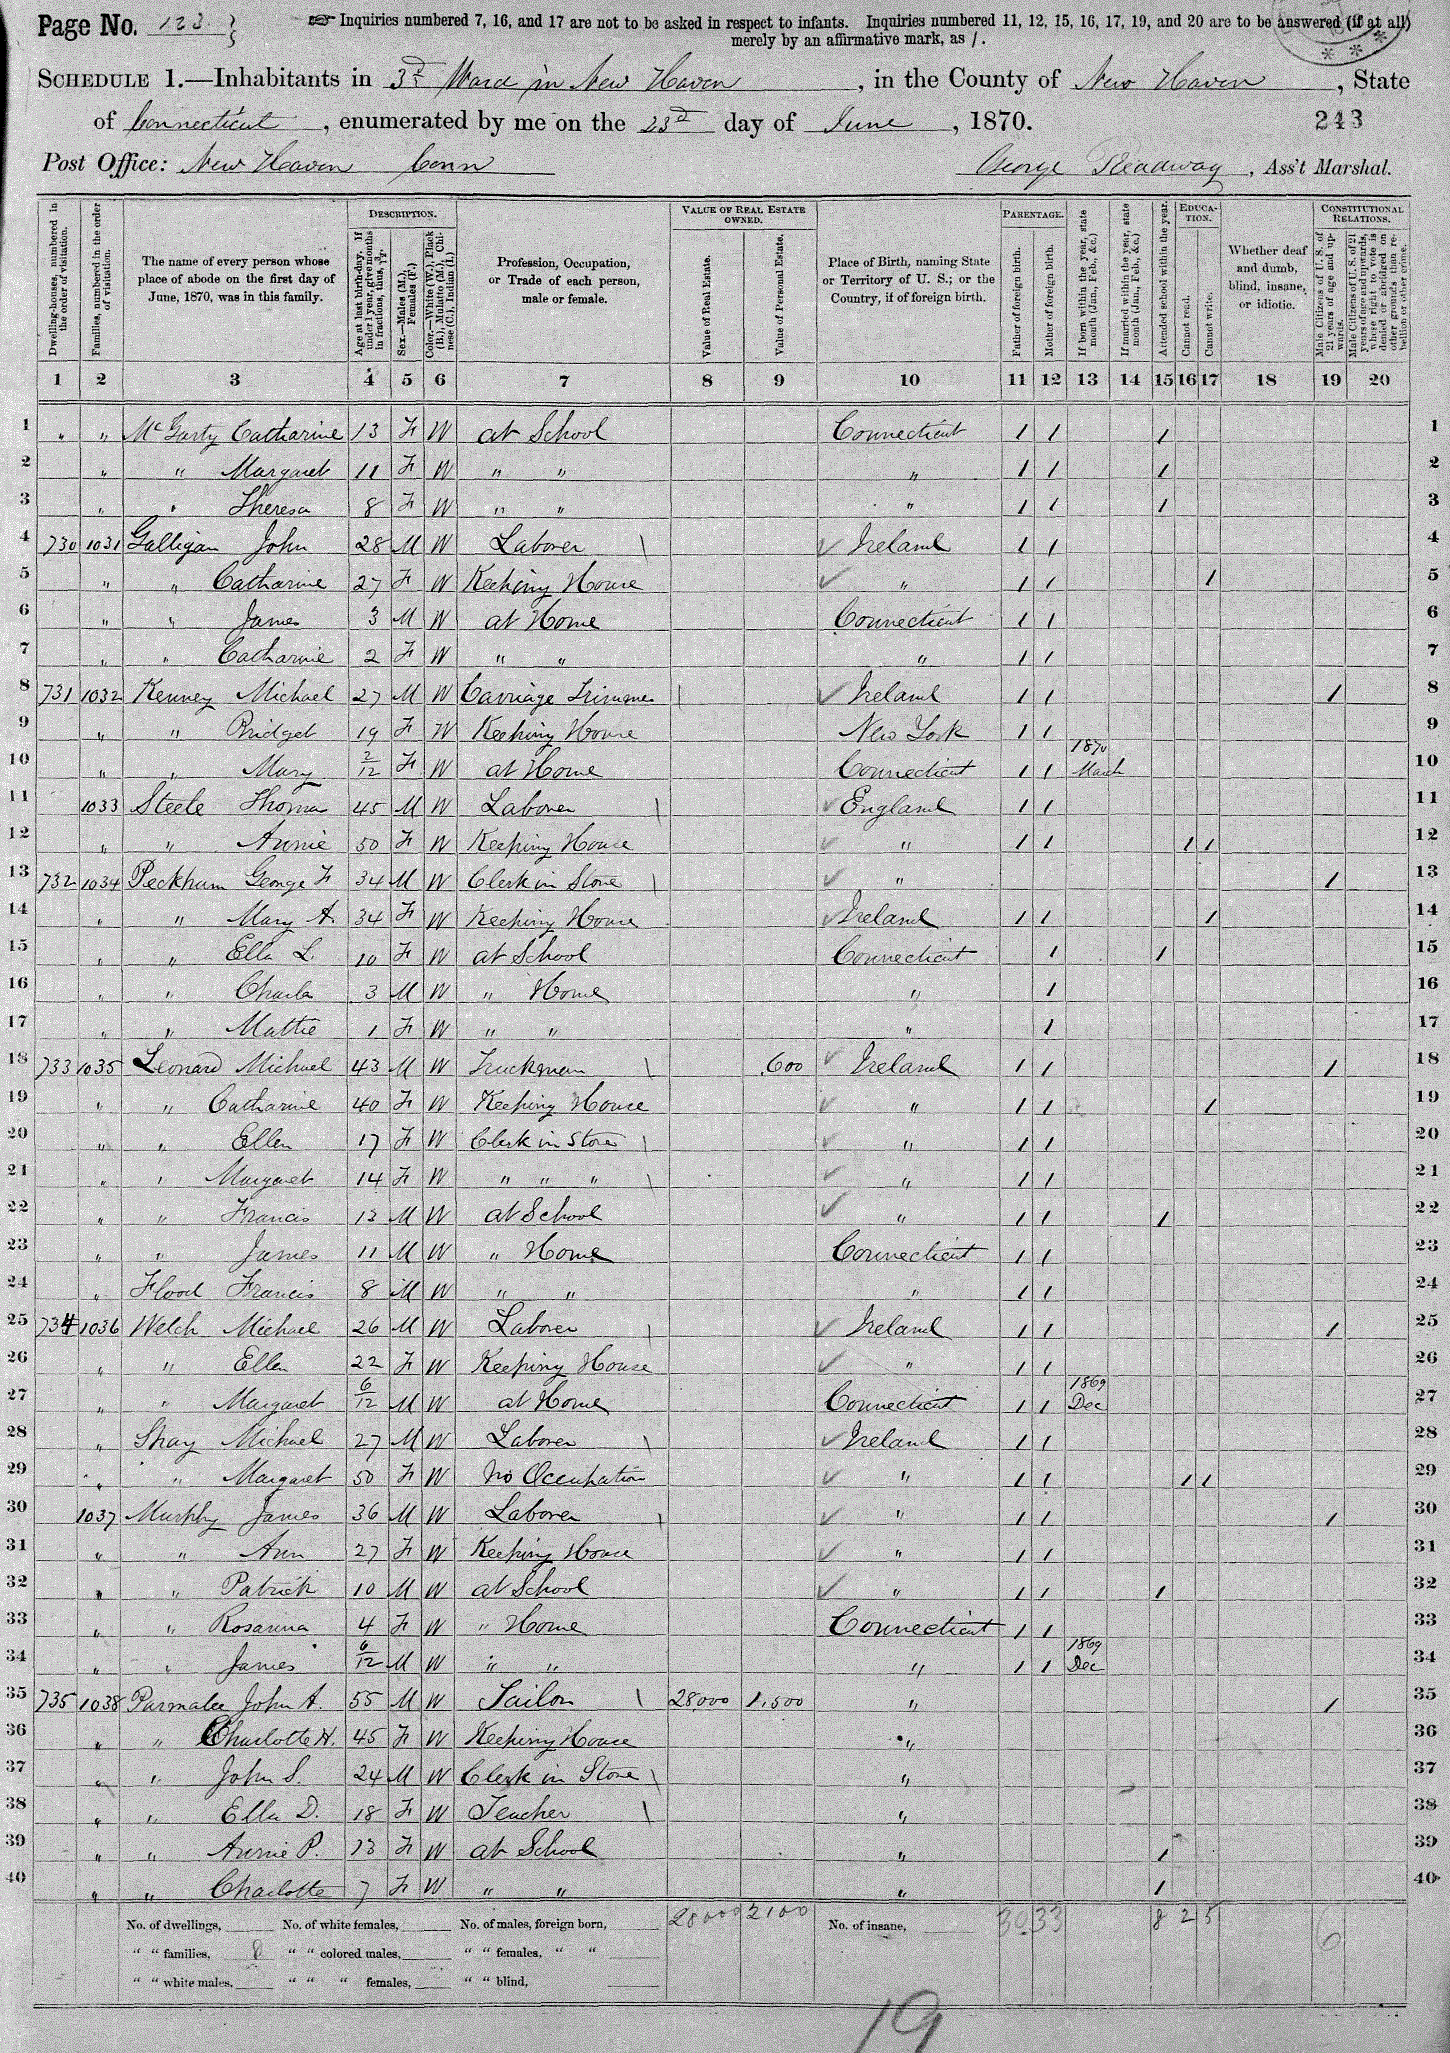 Page No. 123
Inquiries numbered 7, 16, and 17 are not to be asked in respect to infants. Inquiries numbered 11, 12, 15, 16, 17, 19, and 20 are to be answered (if at all)
merely by an affirmative mark, as /.
SCHEDULE 1.—Inhabitants in 3d Ward in New Haven, in the County of New Haven, State
of Connecticut, enumerated by me on the 23d day of June, 1870.
243
Post Office: New Haven Conn
George Readway, Ass't Marshal.
Dwelling-houses, numbered in the order of visitation.
Families, numbered in the order of visitation.
The name of every person whose place of abode on the first day of June, 1870, was in this family.
DESCRIPTION.
Age at last birth-day. If under 1 year, give months in fractions, thus, 3/12.
Sex.—Males (M.), Females (F.)
Color.—White (W.), Black (B.), Mulatto (M.), Chinese (C.), Indian (I.)
Profession, Occupation, or Trade of each person, male or female.
VALUE OF REAL ESTATE OWNED.
Value of Real Estate.
Value of Personal Estate.
Place of Birth, naming State or Territory of U. S.; or the Country, if of foreign birth.
PARENTAGE.
Father of foreign birth.
Mother of foreign birth.
If born within the year, state month (Jan., Feb., &c.)
If married within the year, state month (Jan., Feb., &c.)
EDUCATION.
Attended school within the year.
Cannot read.
Cannot write.
Whether deaf and dumb, blind, insane, or idiotic.
CONSTITUTIONAL RELATIONS.
Male Citizens of U. S. of 21 years of age and upwards.
Male Citizens of U. S. of 21 years of age and upwards, whose right to vote is denied or abridged on other grounds than rebellion or other crime.
1 2 3 4 5 6 7 8 9 10 11 12 13 14 15 16 17 18 19 20
1 " " McGarty Catharine 13 F W at School Connecticut / / / 1
2 " " Margaret 11 F W " " " / / / 2
3 " " Theresa 8 F W " " " / / / 3
4 730 1031 Galligan John 28 M W Laborer Ireland / / 4
5 " " Catharine 27 F W Keeping House " / / / 5
6 " " James 3 M W at Home Connecticut / / 6
7 " " Catharine 2 F W " " " / / 7
8 731 1032 Kenney Michael 27 M W Carriage Trimmer Ireland / / / 8
9 " " Bridget 19 F W Keeping House New York / / 9
10 " " Mary 2/12 F W at Home Connecticut / / 1870 March 10
11 1033 Steele Thomas 45 M W Laborer England / / 11
12 " " Annie 50 F W Keeping House " / / / / 12
13 732 1034 Peckham George F 34 M W Clerk in Store " / 13
14 " " Mary A. 34 F W Keeping House Ireland / / / 14
15 " " Ella L. 10 F W at School Connecticut / / 15
16 " " Charles 3 M W " Home " / 16
17 " " Mattie 1 F W " " " / 17
18 733 1035 Leonard Michael 43 M W Truckman 600 Ireland / / / 18
19 " " Catharine 40 F W Keeping House " / / / 19
20 " " Ellen 17 F W Clerk in Store " / / 20
21 " " Margaret 14 F W " " " " / / 21
22 " " Francis 13 M W at School " / / / 22
23 " " James 11 M W " Home Connecticut / / 23
24 " Flood Francis 8 M W " " " / / 24
25 734 1036 Welch Michael 26 M W Laborer Ireland / / / 25
26 " " Ellen 22 F W Keeping House " / / 26
27 " " Margaret 6/12 M W at Home Connecticut / / 1869 Dec 27
28 " Shay Michael 27 M W Laborer Ireland / / 28
29 " " Margaret 50 F W No Occupation " / / / / 29
30 1037 Murphy James 36 M W Laborer " / / / 30
31 " " Ann 27 F W Keeping House " / / 31
32 " " Patrick 10 M W at School " / / / 32
33 " " Rosanna 4 F W " Home Connecticut / / 33
34 " " James 6/12 M W " " " / / 1869 Dec 34
35 735 1038 Parmalee John A. 55 M W Sailor 28000 1,500 " / 35
36 " " Charlotte H. 45 F W Keeping House " 36
37 " " John S. 24 M W Clerk in Store " 37
38 " " Ella D. 18 F W Teacher " 38
39 " " Annie P. 13 F W at School " / 39
40 " " Charlotte 7 F W " " " / 40
No. of dwellings, No. of white females, No. of males, foreign born, 28000 2100 No. of insane, 30 33 8 2 5 6
" " families, 8 " " colored males, " " females, " "
" " white males, " " " females, " " blind,
19